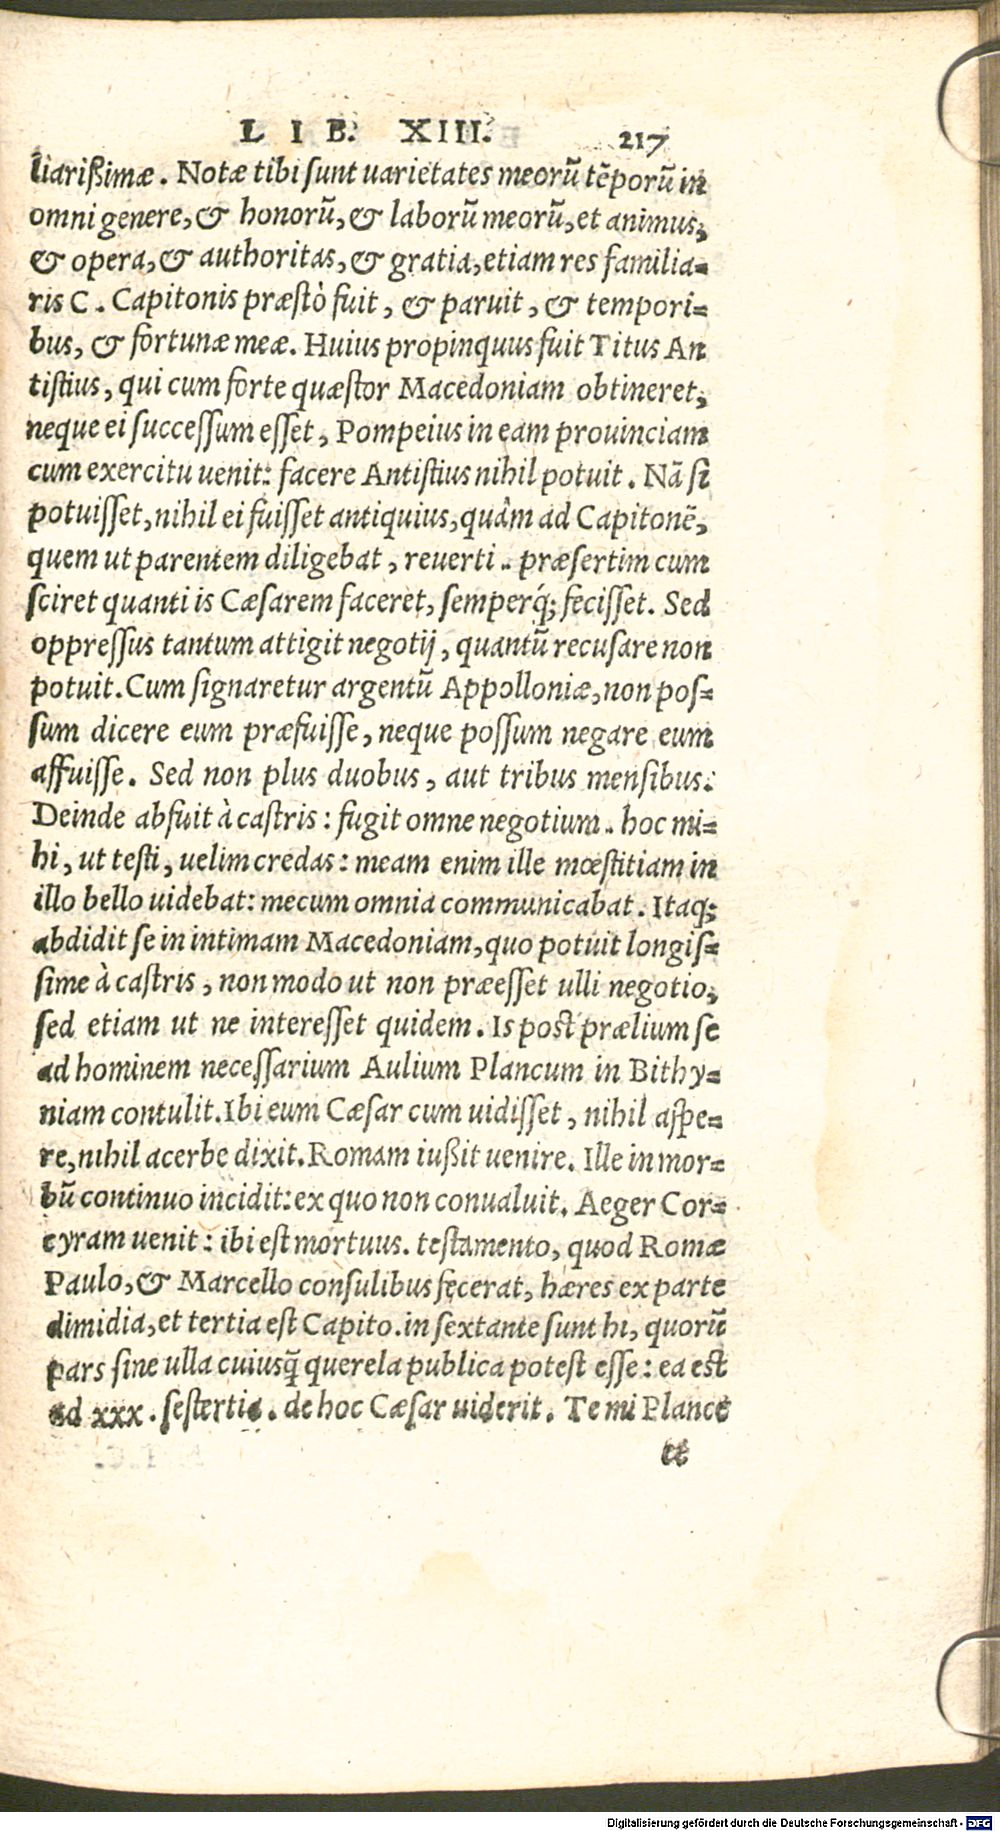 LIB. XIII. 217
liarißimæ. Notæ tibi sunt uarietates meorũ tẽporũ in
omni genere, & honorũ, & laborũ meorũ, et animus,
& opera, & authoritas, & gratia, etiam res familia-
ris C. Capitonis præstò fuit, & paruit, & tempori-
bus, & fortunæ meæ. Huius propinquus fuit Titus An
tistius, qui cum forte quæstor Macedoniam obtineret,
neque ei successum esset, Pompeius in eam prouinciam
cum exercitu uenit: facere Antistius nihil potuit. Nã si
potuisset, nihil ei fuisset antiquius, quàm ad Capitonẽ,
quem ut parentem diligebat, reuerti. præsertim cum
sciret quanti is Cæsarem faceret, semperq́; fecisset. Sed
oppressus tantum attigit negotij, quantũ recusare non
potuit. Cum signaretur argentũ Appolloniæ, non pos-
sum dicere eum præfuisse, neque possum negare eum
affuisse. Sed non plus duobus, aut tribus mensibus.
Deinde abfuit à castris: fugit omne negotium. hoc mi-
hi, ut testi, uelim credas: meam enim ille mœstitiam in
illo bello uidebat: mecum omnia communicabat. Itaq;
abdidit se in intimam Macedoniam, quo potuit longis-
sime à castris, non modo ut non præesset ulli negotio,
sed etiam ut ne interesset quidem. Is post prælium se
ad hominem necessarium Aulium Plancum in Bithy-
niam contulit. Ibi eum Cæsar cum uidisset, nihil aspe-
re, nihil acerbe dixit. Romam iußit uenire. Ille in mor-
bũ continuo incidit: ex quo non conualuit. Aeger Cor-
cyram uenit: ibi est mortuus. testamento, quod Romæ
Paulo, & Marcello consulibus fecerat, hæres ex parte
dimidia, et tertia est Capito. in sextante sunt hi, quorũ
pars sine ulla cuiusq̃ querela publica potest esse: ea est
ad xxx. sestertia. de hoc Cæsar uiderit. Te mi Plance
Digitalisierung gefördert durch die Deutsche Forschungsgemeinschaft - DFG